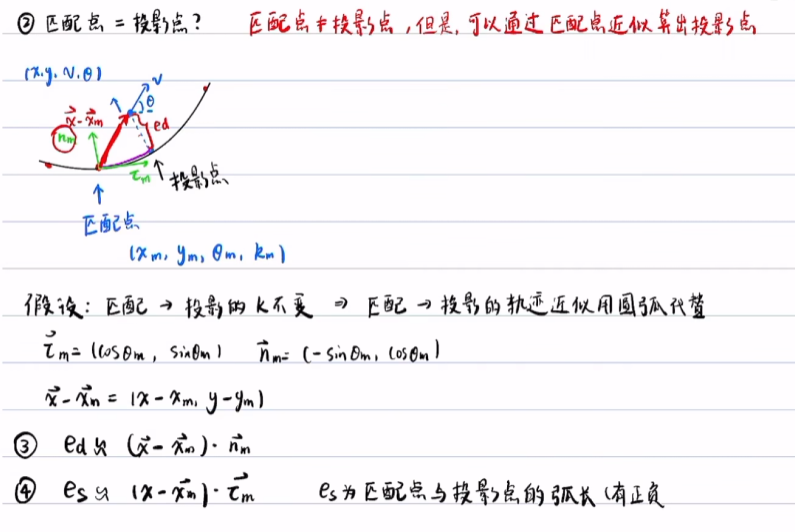 ② 匹配点 = 投影点? 匹配点≠投影点,但是,可以通过匹配点近似算出投影点
(x, y, v, θ)
v
θ
x⃗-x⃗m
ed
nm
τm
投影点
匹配点
(xm, ym, θm, km)
假设: 匹配 → 投影的 K不变 ⇒ 匹配 → 投影的轨迹近似用圆弧代替
τ⃗m = (cosθm, sinθm) n⃗m = (-sinθm, cosθm)
x⃗-x⃗m = (x-xm, y-ym)
③ ed ≈ (x⃗-x⃗m)·n⃗m
④ es ≈ (x-x⃗m)·τ⃗m es为匹配点与投影点的弧长 (有正负